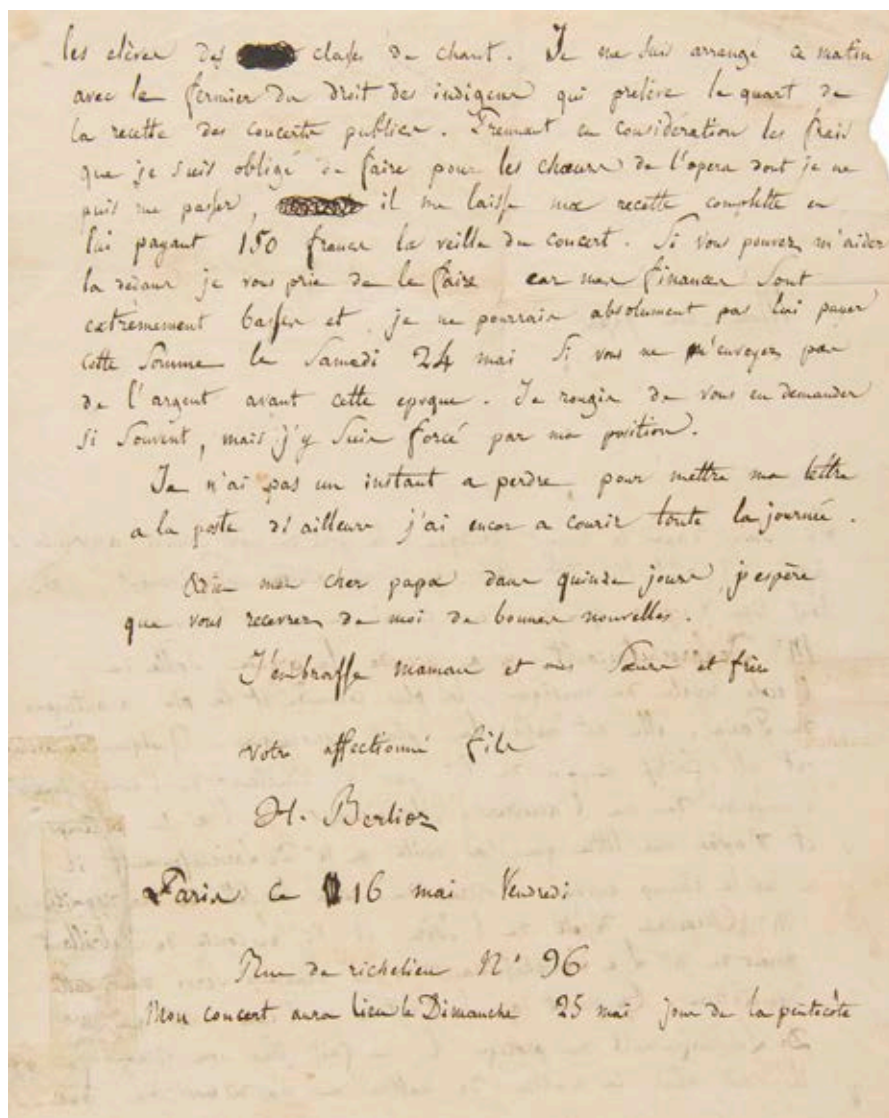 les elèves des classes de chant. Je me suis arrangé ce matin
avec le fermier du droit des indigens qui prélève le quart de
la recette des concerts publics. Prenant en considération les frais
que je suis obligé de faire pour les chœurs de l'opera dont je ne
puis me passer, il me laisse ma recette complette en
lui payant 150 francs la veille du concert. Si vous pouvez m'aider
la dedans je vous prie de le faire car mes finances sont
extrèmement basses et je ne pourrais absolument pas lui payer
cette somme le Samedi 24 mai si vous ne m'envoyez pas
de l'argent avant cette epoque. Je rougis de vous en demander
si souvent, mais j'y suis forcé par ma position.
Je n'ai pas un instant a perdre pour mettre ma lettre
a la poste d'ailleurs j'ai encor a courir toute la journée.
Adieu mon cher papa dans quinze jours j'espère
que vous recevrez de moi de bonnes nouvelles.
J'embrasse maman et mes sœurs et frère
votre affectionné fils
H. Berlioz
Paris ce 16 mai Vendredi
Rue de richelieu N° 96
Mon concert aura lieu le Dimanche 25 mai jour de la pentecôte